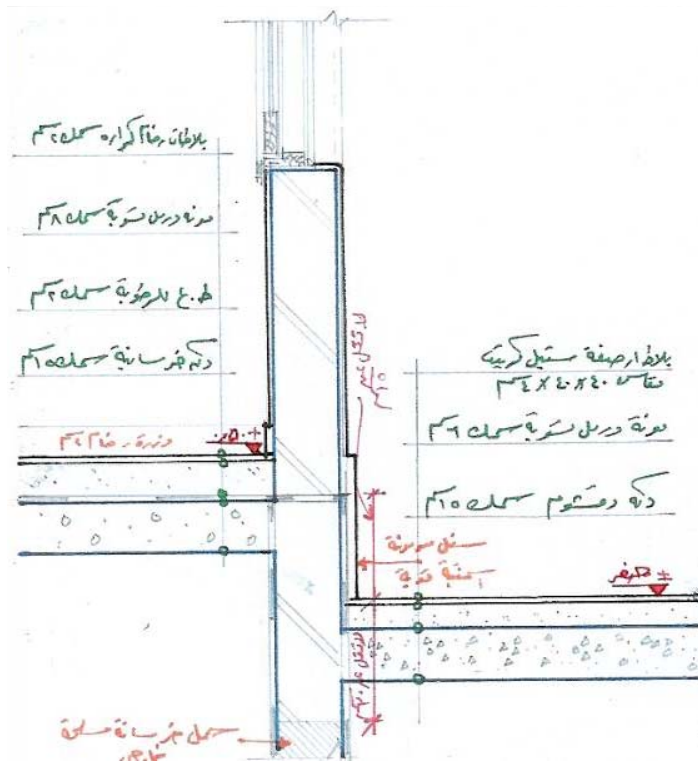 بلاطات رخام كرارة سمك ٢سم
مونة ورمل تسوية سمك ٨سم
ط.ع للرطوبة سمك ٢سم
دكة خرسانية سمك ١٥سم
وزرة رخام
+٠,٥٠
لا تقل عن ١٥سم
بلاط ارصفة ستيل كريت
مقاس ٤٠ × ٤٠ × ٤سم
مونة ورمل تسوية سمك ٦سم
دكة دقشوم سمك ١٥سم
سفل مونة
اسمنتية قوية
± صفر
لا تقل عن
سمل خرسانة مسلحة
خارجي